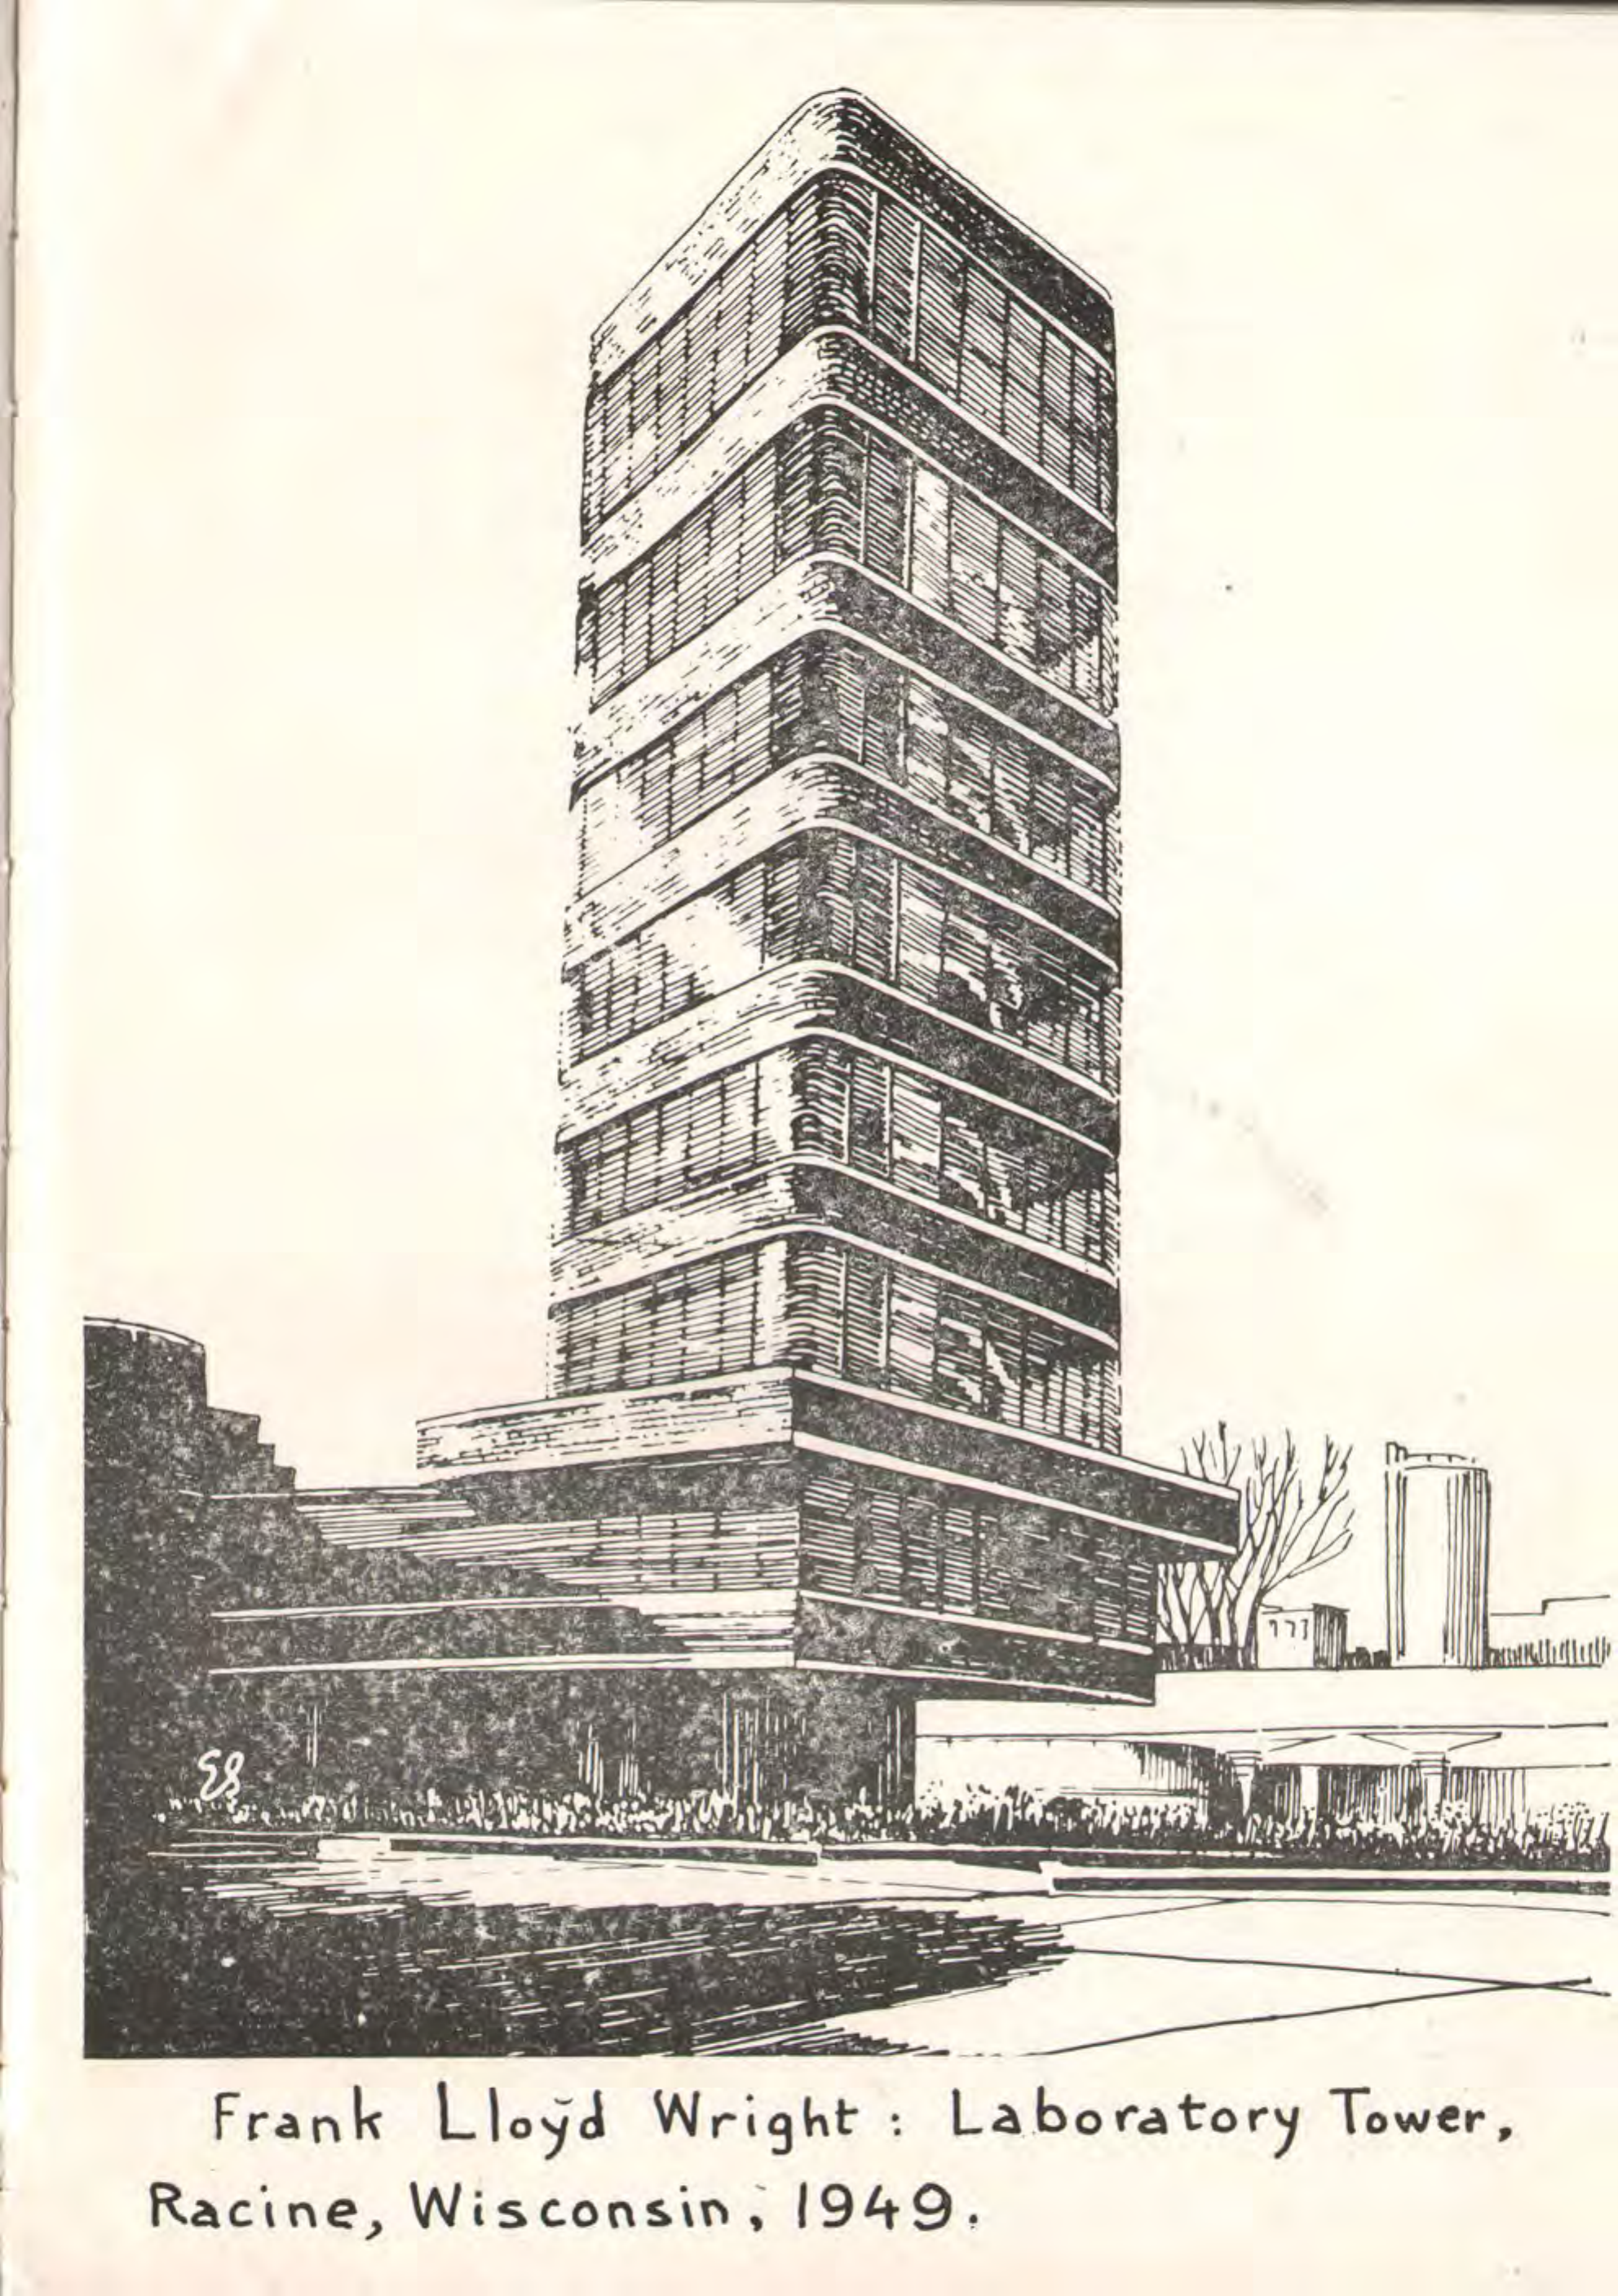 ES
Frank Lloyd Wright : Laboratory Tower,
Racine, Wisconsin, 1949.